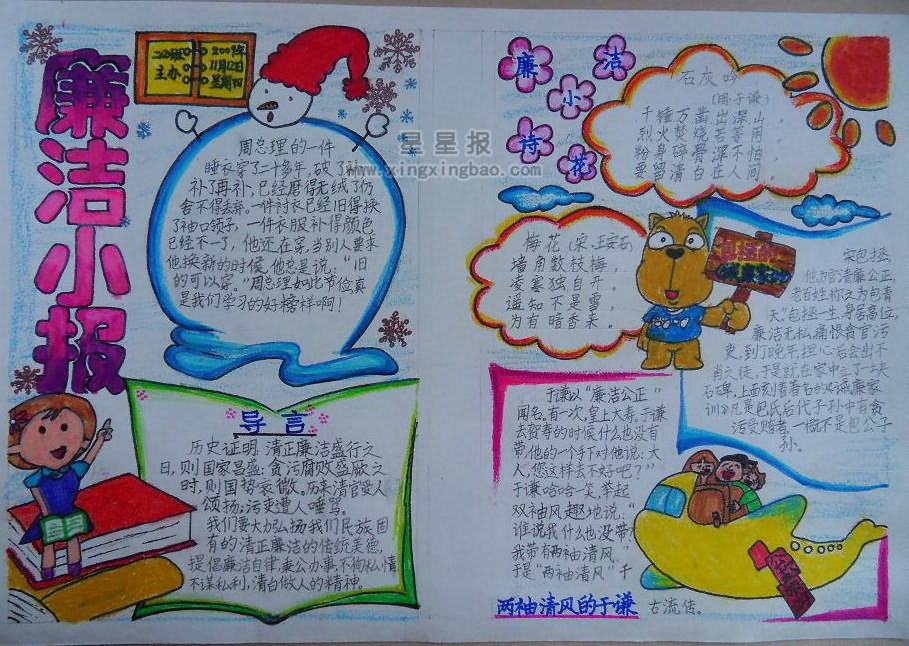 廉洁小报
二(2)班
主办
2009年
11月12日
星期四
周总理的一件
睡衣穿了二十多年,破了补,
补了再补,已经磨得走绒了仍
舍不得去弃。一件衬衣已经旧得换
了袖口领子,一件衣服补得颜色
已经不一了,他还在穿,当别人要求
他换新的时候,他总是说:“旧
的可以穿。”周总理如此节俭真
是我们学习的好榜样啊!
星星报
www.xingxingbao.com
导言
历史证明,清正廉洁盛行之
日,则国家昌盛;贪污腐败盛厥之
时,则国势衰微。历来清官受人
颂扬;污吏遭人唾骂。
我们要大力弘扬我们民族固
有的清正廉洁的传统美德,
提倡廉洁自律,秉公办事,不徇私情
不谋私利,清白做人的精神。
廉洁
小
诗花
石灰吟
(明于谦)
千锤万凿出深山,
烈火焚烧若等闲
粉身碎骨浑不怕,
要留清白在人间。
梅花(宋·王安石)
墙角数枝梅,
凌寒独自开。
遥知不是雪,
为有暗香来。
宋包拯
他为官清廉公正,
老百姓称之为包青
天”包拯一生,身居高位,
廉洁无私,痛恨贪官污
吏,到了晚年,担心后会出不
当之徒,于是就在家中立了一块
石碑,上面刻着著名的《诫廉家
训》凡是包氏后代子孙中有贪
污受贿者,一概不是包公子
孙。
于谦以“廉洁公正”
闻名。有一次,皇上大寿,于谦
去贺寿的时候什么也没有
带,他的一个手下对他说:大
人,您这样去不好吧?”
于谦哈哈一笑,举起
双袖风趣地说:“
谁说我什么也没带?
我带有两袖清风。”
于是“两袖清风”千
古流传。
两袖清风的于谦